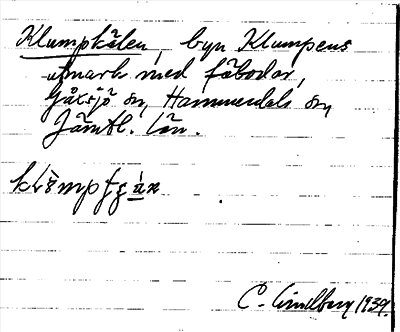 Klumpkälen, byn Klumpens
utmark med fäbodar,
Gåxsjö sn, Hammerdals sn,
Jämtl. län.
C. Lindberg 1939.